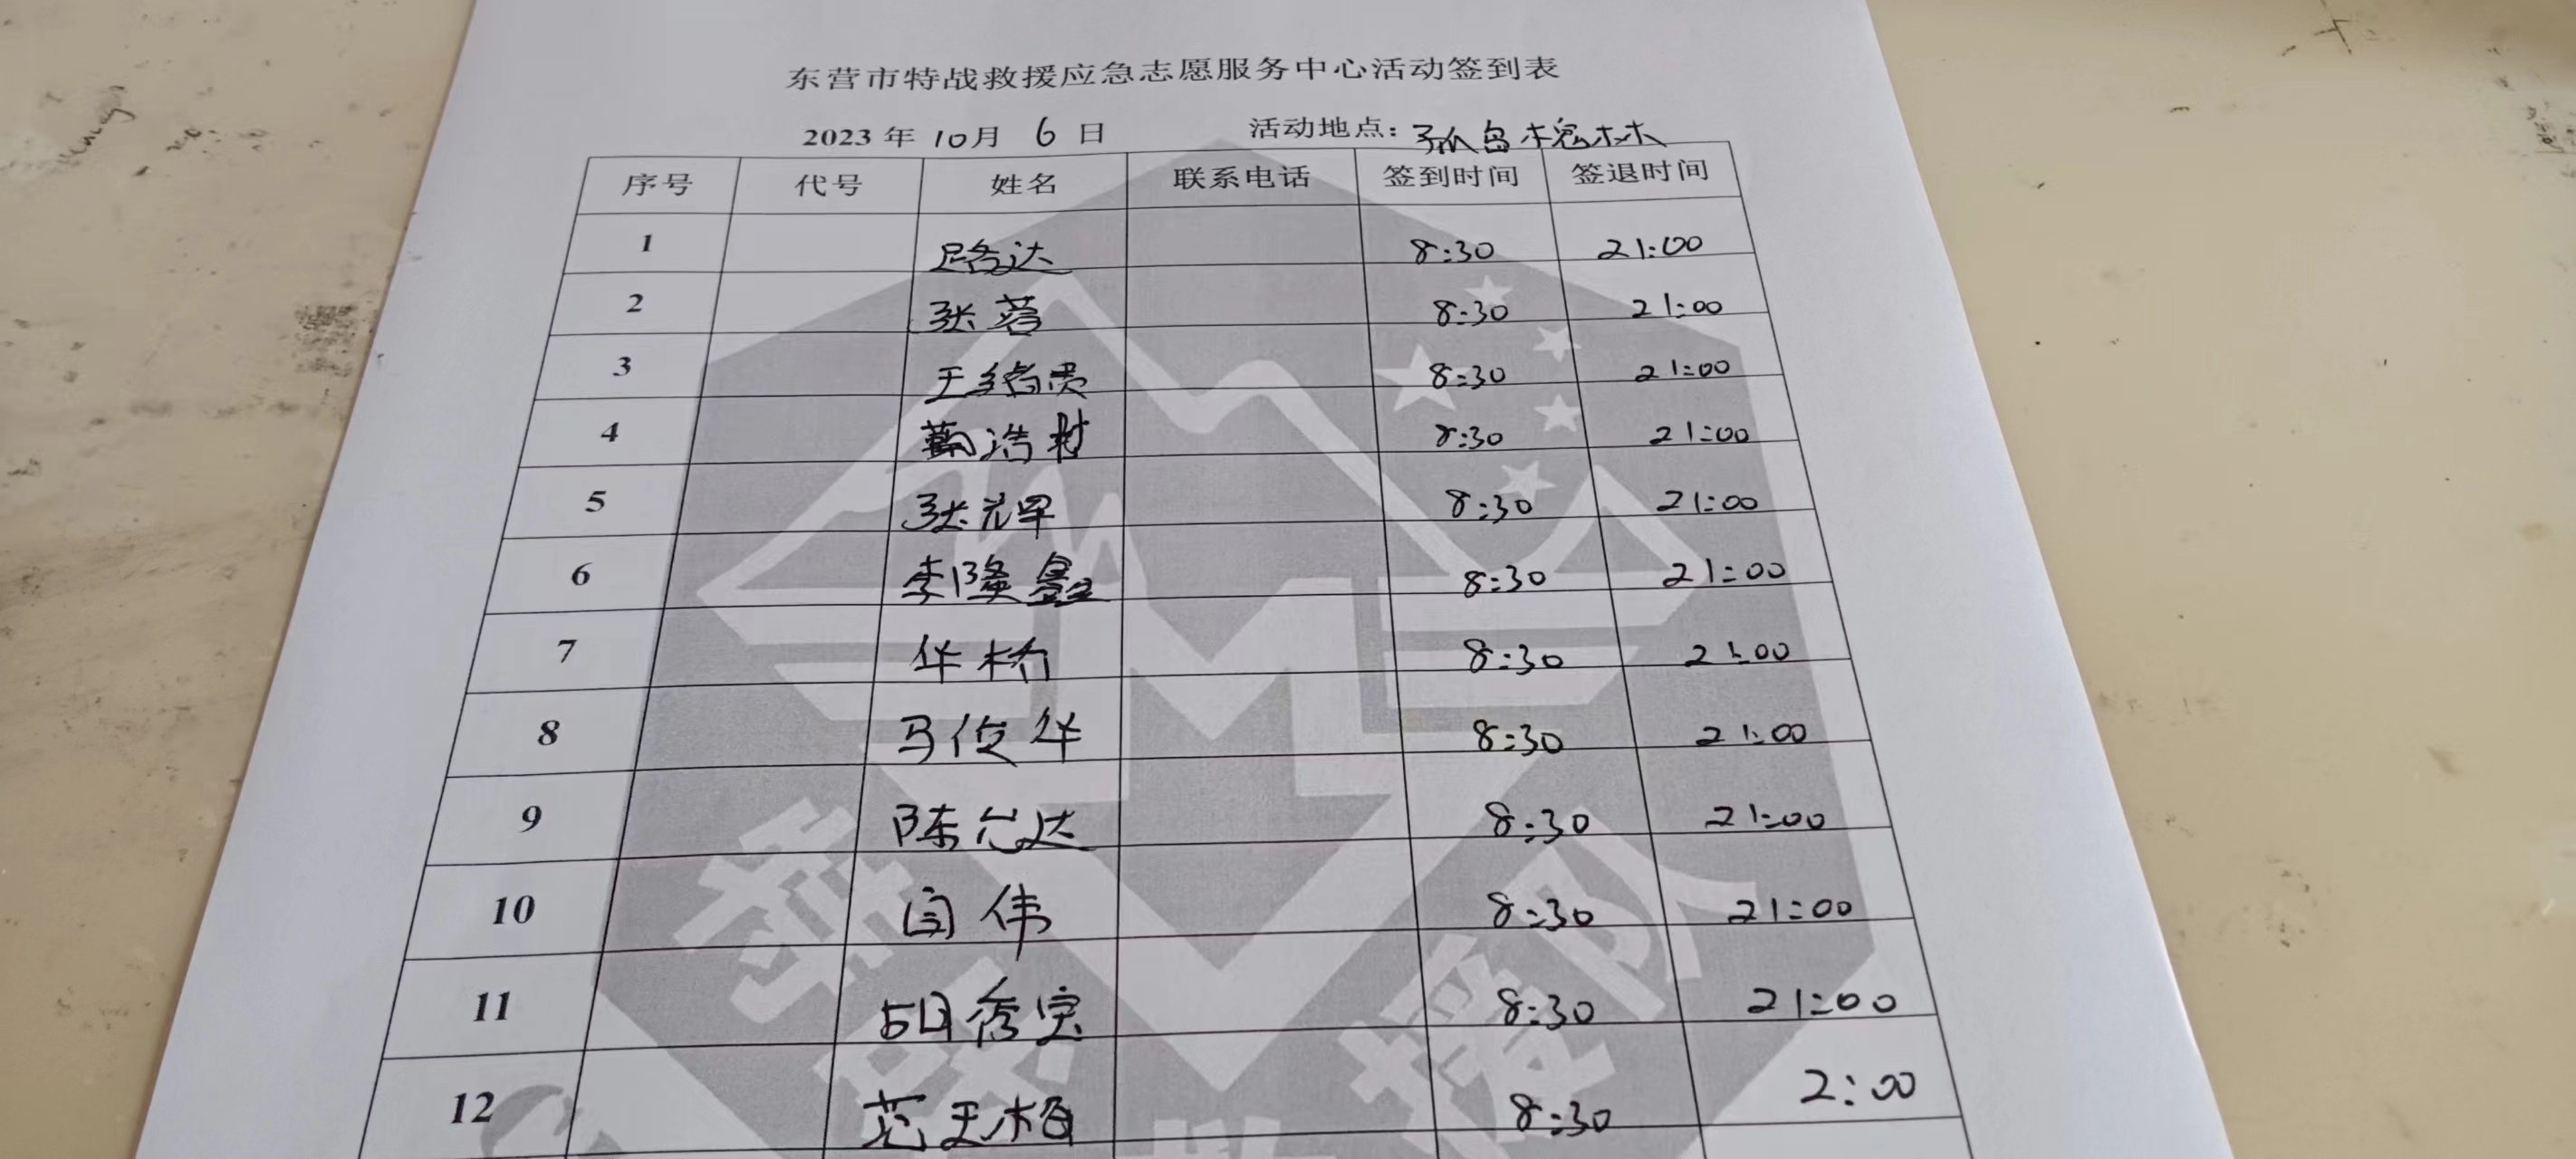 东营市特战救援应急志愿服务中心活动签到表
2023 年 10月 6 日 活动地点: 孤岛槐林
序号 代号 姓名 联系电话 签到时间 签退时间
1 路达 8:30 21:00
2 张蓉 8:30 21:00
3 王绪贵 8:30 21:00
4 蔺浩村 8:30 21:00
5 张光军 8:30 21:00
6 李隆鑫 8:30 21:00
7 华杨 8:30 21:00
8 马俊华 8:30 21:00
9 陈允达 8:30 21:00
10 闫伟 8:30 21:00
11 秀宝 8:30 21:00
12 范玉梅 8:30 2:00
特战 救援队